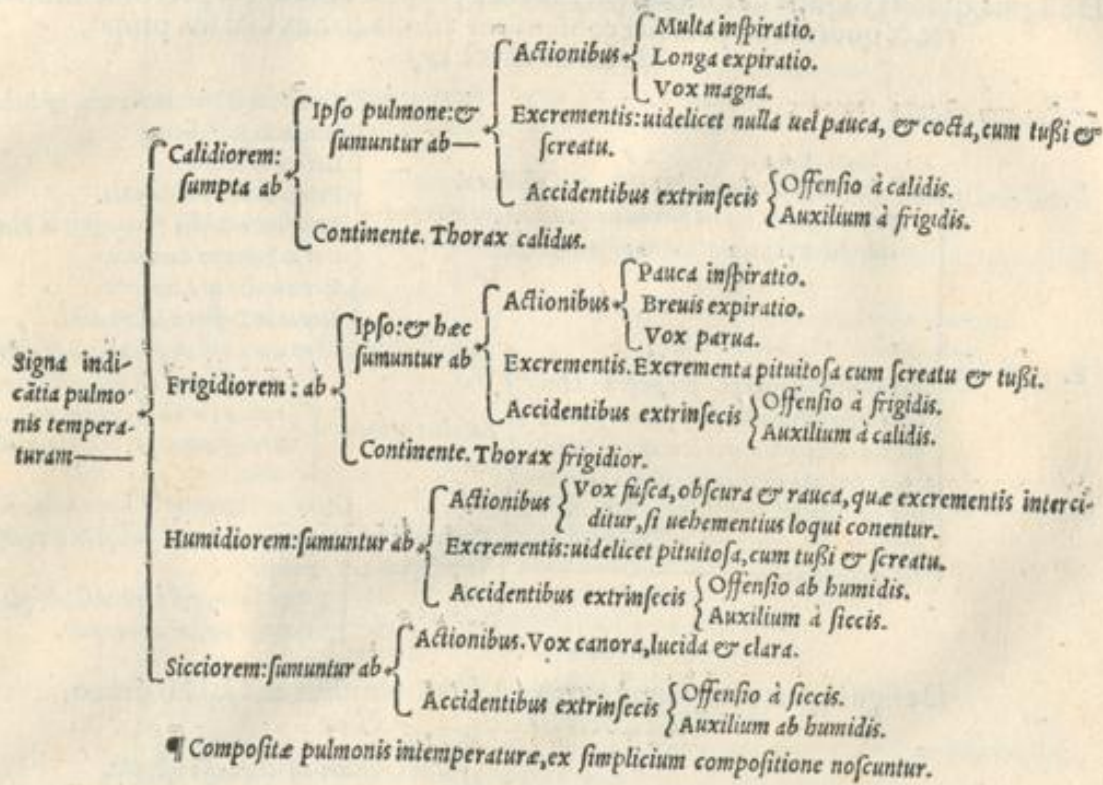 Signa indi-
cãtia pulmo-
nis tempera-
turam
Calidiorem:
ſumpta ab
Ipſo pulmone: &
ſumuntur ab
Actionibus
Multa inſpiratio.
Longa expiratio.
Vox magna.
Excrementis: uidelicet nulla uel pauca, & cocta, cum tußi &
ſcreatu.
Accidentibus extrinſecis
Offenſio à calidis.
Auxilium à frigidis.
Continente. Thorax calidus.
Frigidiorem: ab
Ipſo: & hæc
ſumuntur ab
Actionibus
Pauca inſpiratio.
Breuis expiratio.
Vox parua.
Excrementis. Excrementa pituitoſa cum ſcreatu & tußi.
Accidentibus extrinſecis
Offenſio à frigidis.
Auxilium à calidis.
Continente. Thorax frigidior.
Humidiorem: ſumuntur ab
Actionibus
Vox fuſca, obſcura & rauca, quæ excrementis interci-
ditur, ſi uehementius loqui conentur.
Excrementis: uidelicet pituitoſa, cum tußi & ſcreatu.
Accidentibus extrinſecis
Offenſio ab humidis.
Auxilium à ſiccis.
Sicciorem: ſumuntur ab
Actionibus. Vox canora, lucida & clara.
Accidentibus extrinſecis
Offenſio à ſiccis.
Auxilium ab humidis.
¶ Compoſitæ pulmonis intemperaturæ, ex ſimplicium compoſitione noſcuntur.